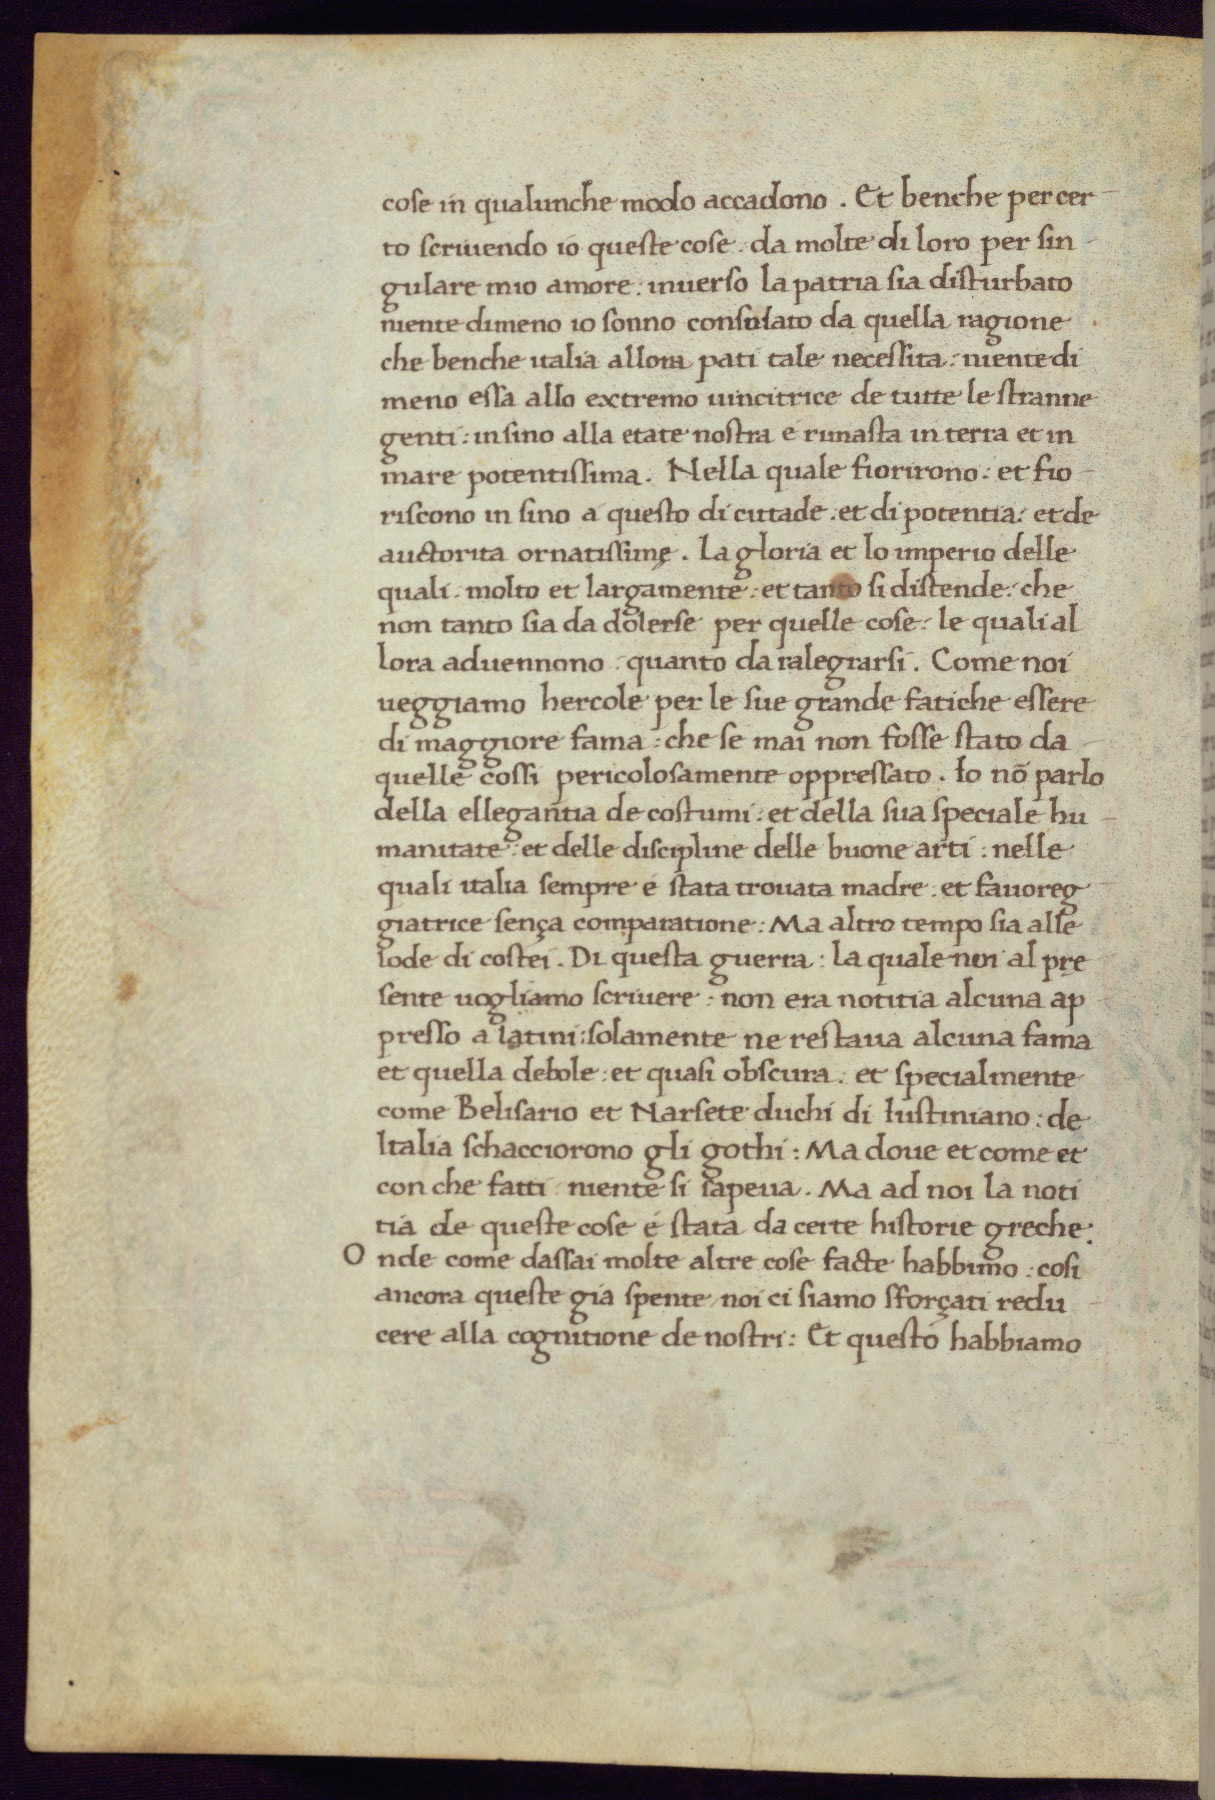 cose in qualunche modo accadono . Et benche per cer-
to scriuendo io queste cose : da molte di loro per sin-
gulare mio amore : inuerso la patria sia disturbato
niente dimeno io sonno consulato da quella ragione
che benche italia allora pati tale necessita : niente di
meno essa allo extremo uincitrice de tutte le stranne
genti : in sino alla etate nostra e rimasta in terra et in
mare potentissima . Nella quale fiorirono : et fio-
riscono in sino a questo di cittade . et di potentia : et de
auctorita ornatissimę . La gloria et lo imperio delle
quali . molto et largamente : et tanto si distende : che
non tanto sia da dolerse per quelle cose : le quali al
lora aduennono : quanto da ralegrarsi . Come noi
ueggiamo hercole per le sue grande fatiche essere
di maggiore fama : che se mai non fosse stato da
quelle cossi pericolosamente oppressato . Io nõ parlo
della ellegantia de costumi : et della sua speciale hu-
manitate : et delle discipline delle buone arti : nelle
quali italia sempre e stata trouata madre : et fauoreg-
giatrice sença comparatione : Ma altro tempo sia alle
lode di costei . Di questa guerra : la quale noi al pre
sente uogliamo scriuere : non era notitia alcuna ap
presso a latini : solamente ne restaua alcuna fama
et quella debole : et quasi obscura : et specialmente
come Belisario et Narsete duchi di Iustiniano : de
Italia schacciorono gli gothi : Ma doue et come et
con che fatti niente si sapeua . Ma ad noi la noti
tia de queste cose é stata da certe historie greche :
Onde come dassai molte altre cose facte habbimo : cosi
ancora queste gia spente noi ci siamo sforçati redu-
cere alla cognitione de nostri : Et questo habbiamo